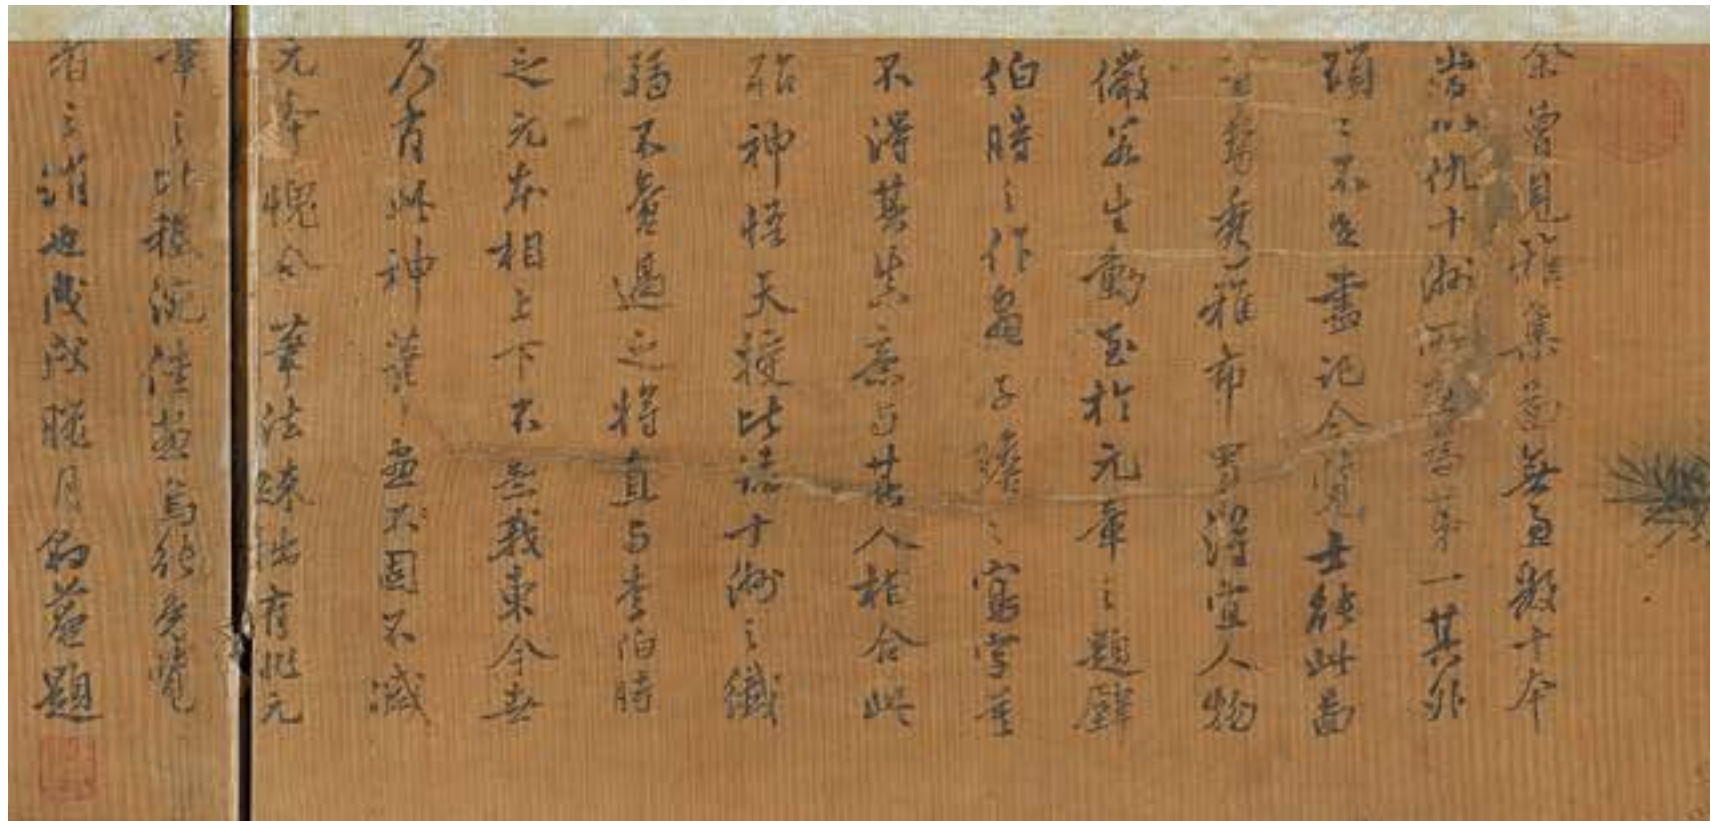 余曾見雅集圖無慮數十本
當以仇十洲所為第一其外
瑣瑣不足盡記今覽士能此圖
秀雅布置得宜人物
儼若生動至於元章之題壁
伯時之作畫子瞻之寫字並
不得其生意與其人相合此
神怪天授比諸十洲之纖
弱不啻過之將直與李伯時
之元本相上下不
乃有此神 畫不固不減
元本愧余筆法疎拙有挑元
章之比穢況佳畫烏能免覽
者之誚也戊戌臘月 菴題